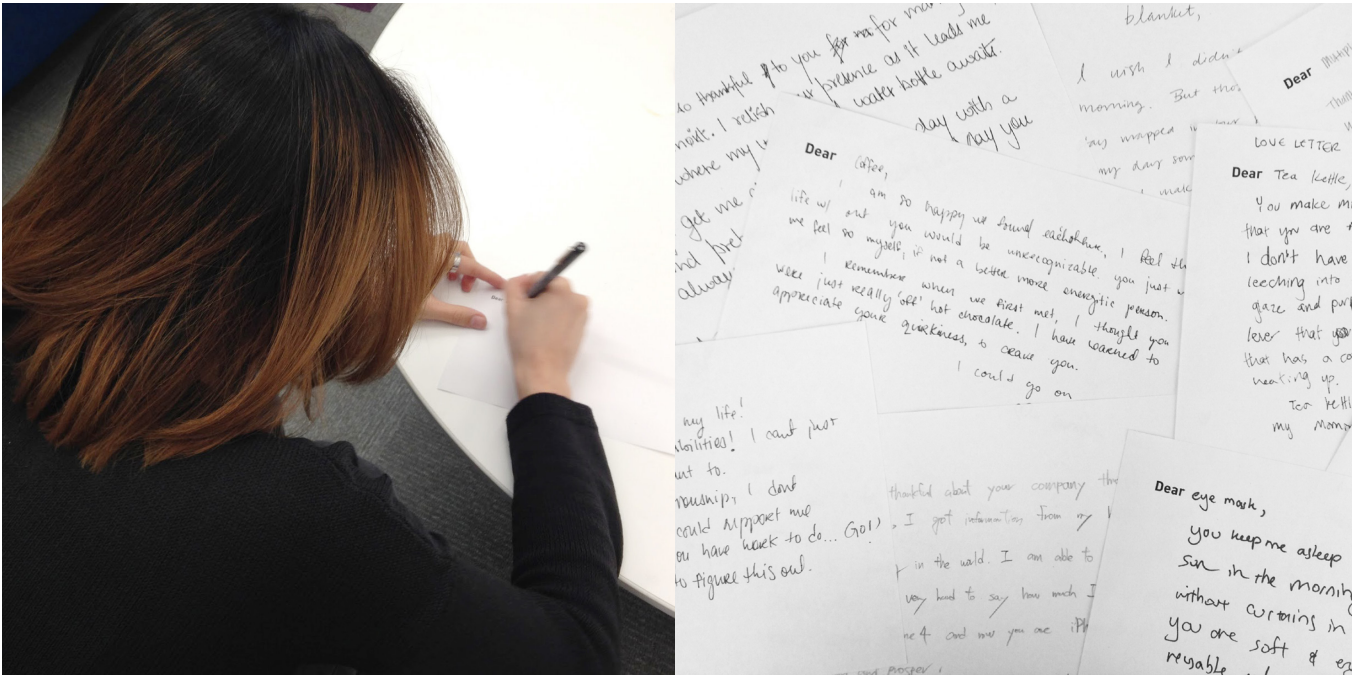 Dear
so thankful to you for for
point. I relish your presence as it leads me
where my water bottle awaits.
day with a
may you
get me
and
always
blanket,
I wish I didn't
morning. But
mapped in
my day
I mak
Dear
LOVE LETTER
Dear Tea Kettle,
You make m
that you are
I don't have
leeching into
gaze and
lever that you
that has a co
heating up.
Tea kettl
my mom
Dear Coffee,
I am so happy we found eachother, I feel th
life w/ out you would be unrecognizable. you just
me feel so myself, if not a better more energetic person.
I remember when we first met, I thought you
were just really 'off' hot chocolate. I have learned to
appreciate your quirkiness, to crave you.
I could go on
my life!
abilities! I cant just
to.
I dont
could support me
have work to do... Go!
to figure this out.
thankful about your company
I got information from my
in the world. I am able to
very hard to say how much I
4 and now you are iPh
Dear eye mask,
you keep me asleep
sun in the morning
without curtains in
you are soft &
reusable